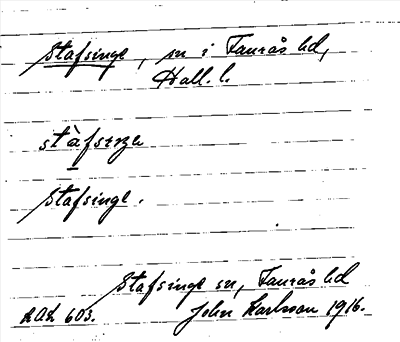 Stafsinge, sn i Faurås hd,
Hall. l.
Stafsinge.
Stafsinge sn, Faurås hd
603. John Karlsson 1916.